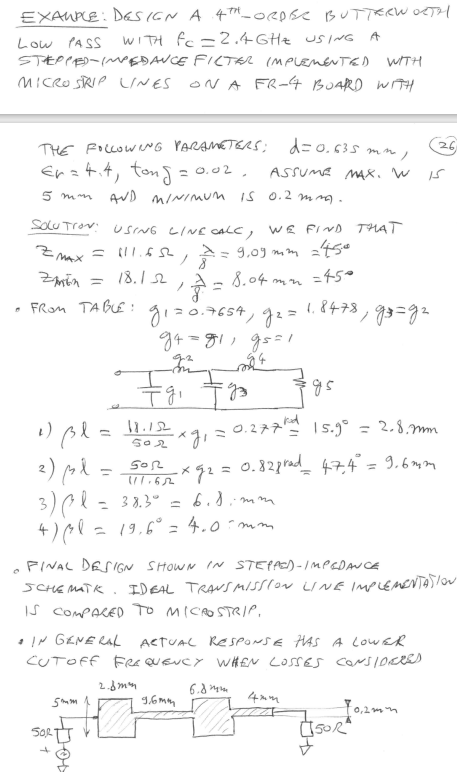 EXAMPLE: DESIGN A 4TH-ORDER BUTTERWORTH
LOW PASS WITH fc = 2.4 GHz USING A
STEPPED-IMPEDANCE FILTER IMPLEMENTED WITH
MICROSTRIP LINES ON A FR-4 BOARD WITH
THE FOLLOWING PARAMETERS: d = 0.635 mm, 26
εr = 4.4, tan δ = 0.02. ASSUME MAX. W IS
5 mm AND MINIMUM IS 0.2 mm.
SOLUTION: USING LINECALC, WE FIND THAT
Zmax = 111.6 Ω, λ/8 = 9.09 mm = 45°
Zmin = 18.1 Ω, λ/8 = 8.04 mm = 45°
• FROM TABLE: g1 = 0.7654, g2 = 1.8478, g3 = g2
g4 = g1, g5 = 1
g2 g4
g1 g3 g5
1) βl = 18.1Ω/50Ω × g1 = 0.277 rad = 15.9° = 2.8 mm
2) βl = 50Ω/111.6Ω × g2 = 0.828 rad = 47.4° = 9.6 mm
3) βl = 38.3° = 6.8 mm
4) βl = 19.6° = 4.0 mm
• FINAL DESIGN SHOWN IN STEPPED-IMPEDANCE
SCHEMATIK. IDEAL TRANSMISSION LINE IMPLEMENTATION
IS COMPARED TO MICROSTRIP.
• IN GENERAL ACTUAL RESPONSE HAS A LOWER
CUTOFF FREQUENCY WHEN LOSSES CONSIDERED
2.8mm 6.8mm
5mm 9.6mm 4mm 0,2mm
50Ω 50Ω
+